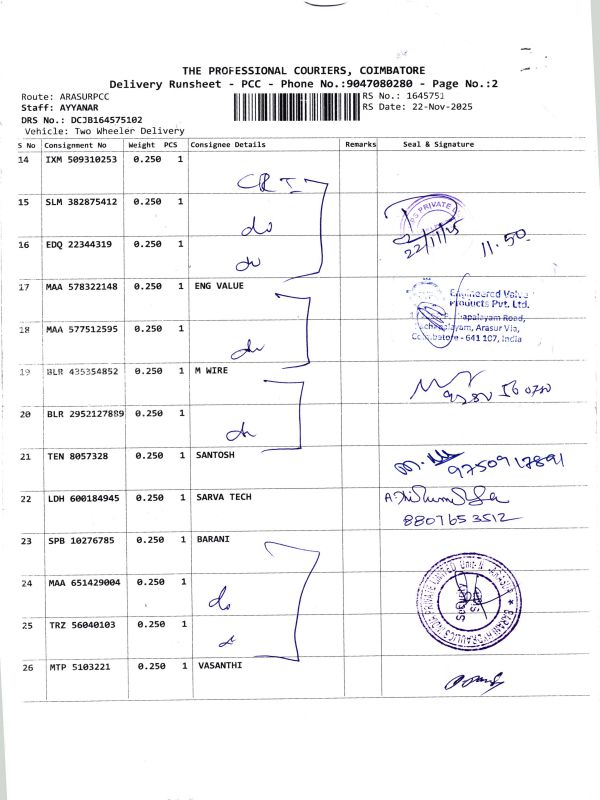 THE PROFESSIONAL COURIERS, COIMBATORE
Delivery Runsheet - PCC - Phone No.:9047080280 - Page No.:2
Route: ARASURPCC
RS No.: 1645751
Staff: AYYANAR
RS Date: 22-Nov-2025
DRS No.: DCJB164575102
Vehicle: Two Wheeler Delivery
S No Consignment No Weight PCS Consignee Details Remarks Seal & Signature
14 IXM 509310253 0.250 1
CRI
15 SLM 382875412 0.250 1 do
PRIVATE
22/11/25 11.50
16 EDQ 22344319 0.250 1 do
17 MAA 578322148 0.250 1 ENG VALUE
Engineered Valve
Products Pvt. Ltd.
apalayam Road,
18 MAA 577512595 0.250 1 do
Arasur Via,
Coimbatore - 641 107, India
19 BLR 435354852 0.250 1 M WIRE
20 BLR 2952127889 0.250 1 do
21 TEN 8057328 0.250 1 SANTOSH
9750917891
22 LDH 600184945 0.250 1 SARVA TECH
8807653512
23 SPB 10276785 0.250 1 BARANI
24 MAA 651429004 0.250 1 do
BARANI HYDRAULICS INDIA PRIVATE LIMITED UNIT-IV ARASUR
Security
25 TRZ 56040103 0.250 1
26 MTP 5103221 0.250 1 VASANTHI